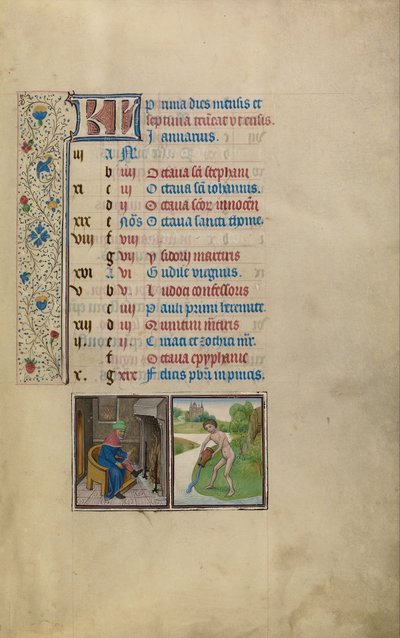 KL Prima dies mensis et
septima truncat ut ensis.
Januarius.
iii A
b iiii Octava sci stephani
xi c iii Octava sci iohannis.
d ii Octava scor innocen
xix e Nos Octava sancti thome.
viii f viii
g vii ysidori martiris
xvi A vi Gudile virginis.
v b v Ludoci confessoris
c iiii Pauli primi heremite.
xiii d iii Quintini mris
ii e ii Ciriaci et Zothici mr.
f Octava epyphanie
x. g xix Felicis pbri in pincis.